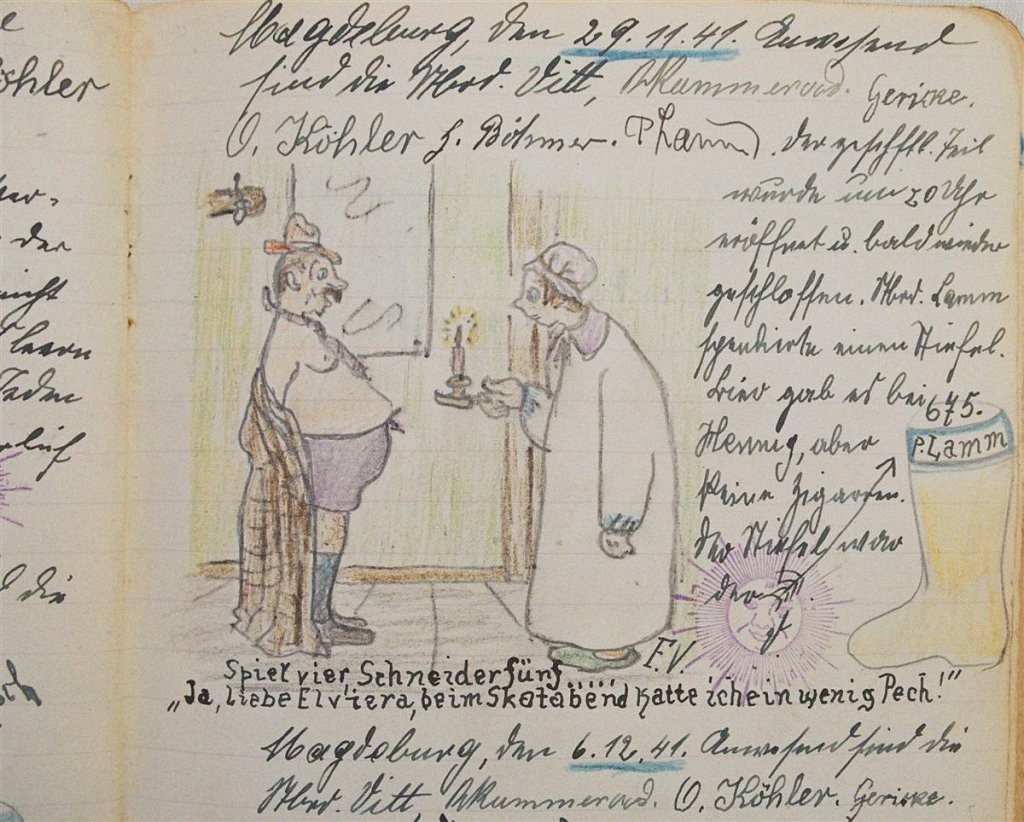 e
öhler
er-
der
nicht
leeren
Jeden
rlich
d die
sch
Magdeburg, den 29.11.41. Anwesend
sind die Mbrd. Vitt, Akummerad. Gericke.
O. Köhler H. Böhmer. P Lamm. Der geschftl. Teil
wurde um 20 Uhr
eröffnet u. bald wieder
geschlossen. Mbrd. Lamm
spendierte einen Stiefel.
Bier gab es bei
Hennig, aber
keine Zigarren.
Der Stiefel war
der
675.
P. Lamm
F.V.
Spiel vier, Schneider fünf.....
„Ja, liebe Elviera, beim Skatabend hatte ich ein wenig Pech!"
Magdeburg, den 6.12.41. Anwesend sind die
Mbrd. Vitt, Akummerad. O. Köhler. Gericke.